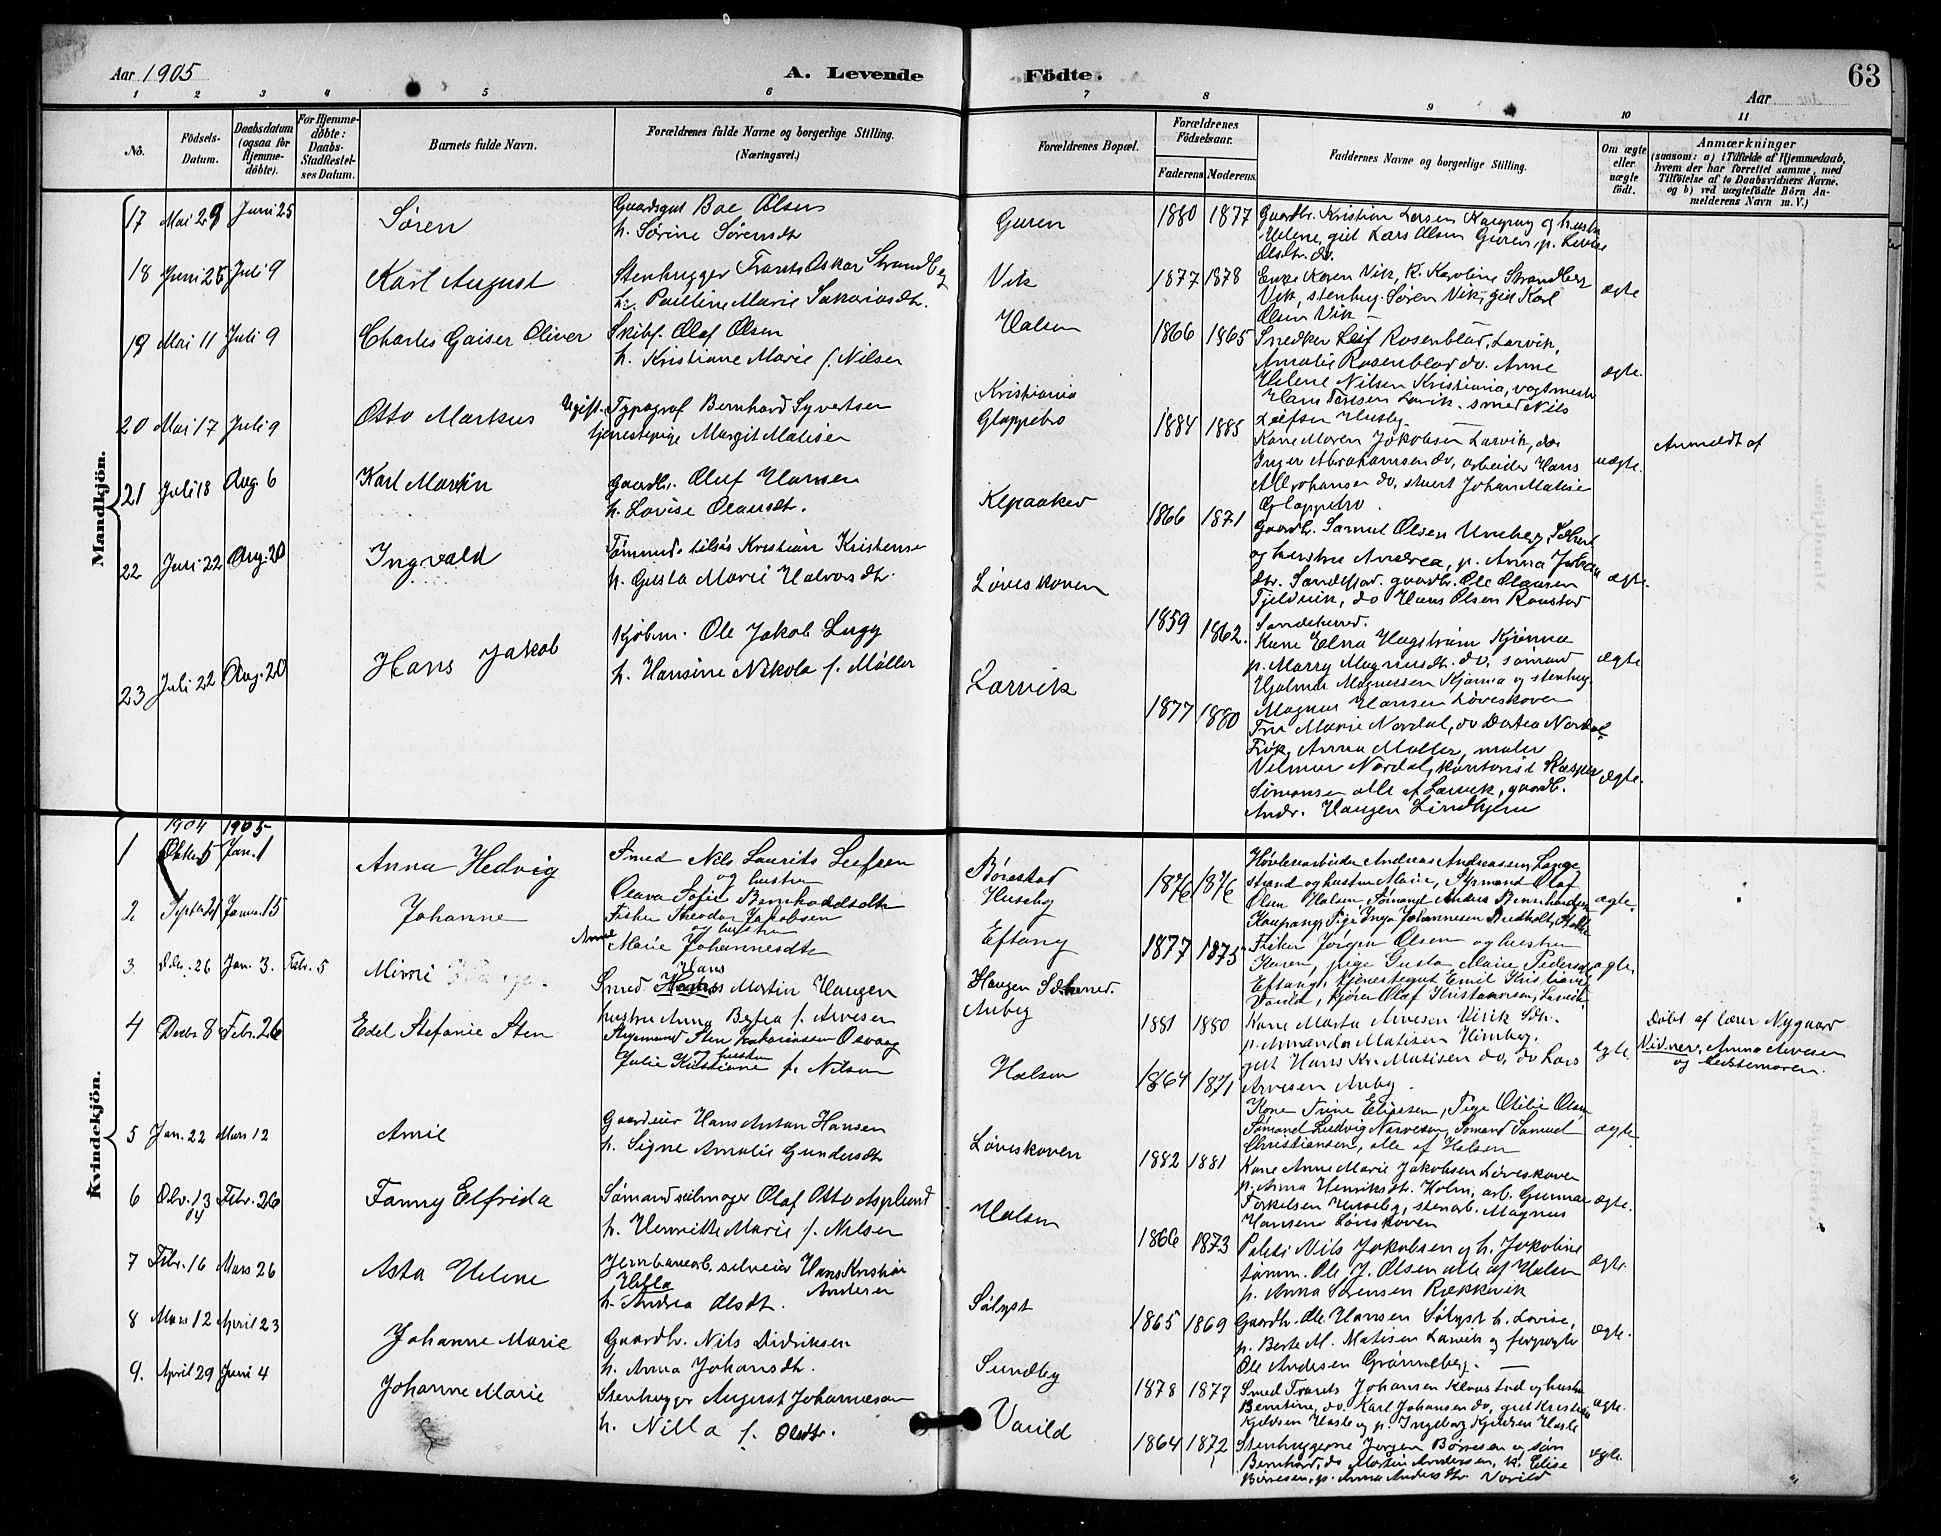 Aar 1905
A. Levende
Födte.
Aar
63
1 2 3 4 5 6 7 8 9 10 11
No.
Födsels-Datum.
Daabsdatum (ogsaa for Hjemme-döbte).
For Hjemme-döbte: Daabs-Stadfæstel-ses Datum.
Barnets fulde Navn.
Forældrenes fulde Navne og borgerlige Stilling.
(Næringsvei.)
Forældrenes Bopæl.
Forældrenes Födselsaar.
Faderens. Moderens.
Faddernes Navne og borgerlige Stilling.
Om ægte eller uægte födt.
Anmærkninger
(saasom: a) i Tilfælde af Hjemmedaab, hvem der har forrettet samme, med Tilföielse af to Daabsvidners Navne. og b) ved uægtefödte Börn An-melderens Navn m. V.)
Mandkjön.
17 Mai 29 Juni 25 Søren
Gaardsgut Boe Olsen
h. Sørine Sørensdt
Guren 1880 1877
Gaardbr. Kristian Larsen Kaupang og hustru
Helene, gut Lars Olsen Guren, p. Lovise
Olsdtr. do.
18 Juni 25 Juli 9 Karl August
Stenhugger Frants Oskar Strandberg
h. Pauline Marie Sakariasdt.
Vik 1877 1878
Enke Karen Vik, K. Karoline Strandberg
Vik, stenhug. Søren Vik, gut Karl
Olsen Vik
ægte
19 Mai 11 Juli 9 Charles Gaiser Oliver
Skibsf. Olaf Olsen
h. Kristiane Marie f. Nilsen
Halsen 1866 1865
Snedker Leif Rosenblad, Larvik,
Amalie Rosenblad do. Anne
Helene Nilsen Kristiania, vagtmestr
Hans Larvik. smed Nils
Leifsen Huseby
ægte.
20 Mai 17 Juli 9 Otto Markus
Ugift. Typograf Bernhard Syvertsen
tjenestepige Margit Matisen
Kristiania
Gloppebro 1884 1885
Kone Maren Jakobsen Larvik, do
Inger Abrahamsen do, arbeider Hans
do, stuert Johan Matisen
Gloppebro.
uægte.
Anmeldt af
21 Juli 18 Aug 6 Karl Martin
gaardbr. Oluf Hansen
h. Lovise Olausdt.
Klepaaker 1866 1871
Gaardbr. Samuel Olsen Unneberg Sdherd
og hustru Andrea, p. Anna Johan
dtr. Sandefjord. gaardbr. Ole Olausen
Fjeldvik, do Hans Olsen Raustad
Sandeherred.
ægte.
22 Juni 22 Aug. 20 Ingvald
Tømmerm. tilsøs Kristian Kristensen
h. Gusta Marie Halvorsdtr.
Løveskoven 1859 1862.
Kone Elna Hagstrøm Kjønna
p. Marry Magnusdt. do. sømand
Hjalmar Magnussen Kjønna og stenhug.
Magnus Hansen Løveskoven
ægte
23 Juli 22 Aug. 20 Hans Jakob
Kjøbm. Ole Jakob Lugg
h. Hansine Nikola f. Møller
Larvik 1877 1880
Fru Marie Nordal, do Dortea Nordal
Frøk. Anna Møller, maler
Vilmar Nordal, kontorist Kasper
Simonsen alle af Larvik, gaardb.
Andr. Haugen Lindhjem
ægte.
Kvindekjön.
1904 1905
1 Oktbr 5 Jan. 1 Anna Hedvig
Smed Nils Laurits Leifsen
og hustru
Olava Sofie Bernhardsdtr
Børestad
Huseby 1876 1876
Høvleriarbeider Andreas Andreassen, Lange
strand og hustru Marie, Styrmand Olaf
Olsen Halsen, Sømand Anders Bernhardsen
Kaupang, Pige Inga Johannesen Bredholt,
ægte.
2 Septbr 24 Januar 15 Johanne
Fisker Theodor Jakobsen
og hustru
Anne Marie Johannesdtr
Eftang 1877 1875
Fisker Jørgen Olsen og hustru
Karen, pige Gusta Marie Pedersen
Eftang, tjenestegut Emil Kristiansen
Varild, Olaf Kristiansen, Larvik
ægte.
3. Dcbr. 26 Jan. 3. Febr. 5 Mimi
Smed Hans Martin Haugen
hustru Anna Berta f. Arvesen
Haugen Sdherred.
Auby 1881 1880
Kone Marta Arvesen Virik Sdhr.
p. Amanda Matisen Himberg.
gut Hans Kr. Matisen do, do Lars
Arvesen Auby.
ægte.
Døbt af lærer Nygaard
Vidner, Anna Arvesen
og Jordemoren.
4 Decbr 8 Febr. 26 Edel Stefanie Sten
Styrmand Sten Zakariassen Osvaag
og hustru
Julie Kristiane f. Nilsen
Halsen 1864 1871
Kone Trine Eliassen, Pige Otilie Olsen
Sømand Ludvig Narvesen, Sømand Samuel
Christiansen, alle af Halsen
ægte
5 Jan. 22 Mars 12 Amil
Gaardeier Hans Anton Hansen
h. Signe Amalie Gundersdt
Løveskoven 1882 1881
Kone Anne Marie Jakobsen Løveskoven
p. Anna Henriksdt. Holm, arb. Gunnar
Torkelsen Huseby, stenarb. Magnus
Hansen Løveskoven
ægte.
6 Okbr. 13 04 Febr. 26 Fanny Elfrida
Sømand seilmager Olaf Otto Asplund
h. Henriette Marie f. Nilsen
Halsen 1866 1873
Politi Nils Jakobsen og h. Jokobine
tømm. Ole J. Olsen alle af Halsen
p. Anna Sørensen Rækkevik
ægte.
7 Febr. 16 Mars 26 Asta Helene
Jernbanearb. selveier Hans Kristian
Andersen
h. Andrea Olsdt.
Sølyst 1865 1869
Gaardbr. Ole Hansen Sølyst h. Lovise,
p. Berte M. Matisen Larvik og
Ole Andersen Grønneberg.
ægte.
8 Mars 12 April 23 Johanne Marie
Gaardbr. Nils Didriksen
h. Anna Johansdt.
Sundby 1878 1877
Smed Frants Johansen Klaastad og hustru
Berntine, do. Karl Johansen do, gut Kristian
Kjeldsen Hasle og p. Ingeborg Kjeldsen Hasle
ægte.
9. April 29 Juni 4 Johanne Marie
Stenhugger August Johannesen
h. Nilla f. Olsdtr.
Varild 1864 1872
Stenhuggerne Jørgen Børresen og søn
Bernhard, do Martin Andersen, k. Elise
Børresen, p. Anna Andersdtr Varild
ægte.